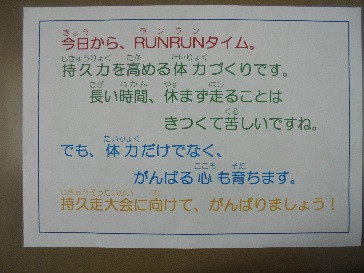 今日から、RUNRUNタイム。
持久力を高める体力づくりです。
長い時間、休まず走ることは
きつくて苦しいですね。
でも、体力だけでなく、
がんばる心も育ちます。
持久走大会に向けて、がんばりましょう！